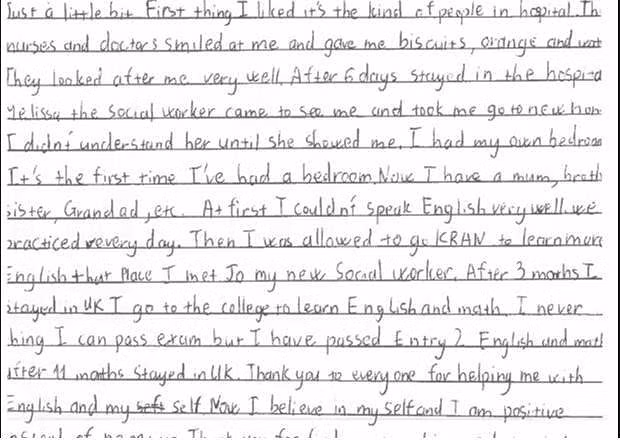 Just a little bit. First thing I liked it's the kind of people in hospital. Th
nurses and doctors smiled at me and gave me biscuits, orange and wat
They looked after me very well. After 6 days stayed in the hospita
Melissa the social worker came to see me and took me go to new hom
I didn't understand her until she showed me. I had my own bedroom
It's the first time I've had a bedroom. Now I have a mum, broth
sister, Grandad, etc. At first I couldn't speak English very well. we
practiced every day. Then I was allowed to go KRAN to learn more
English that Place I met Jo my new Social worker. After 3 months I
stayed in UK I go to the college to learn English and math. I never
thing I can pass exam but I have passed Entry 2 English and math
after 11 months stayed in UK. Thank you to every one for helping me with
English and my self. Now I believe in my self and I am positive